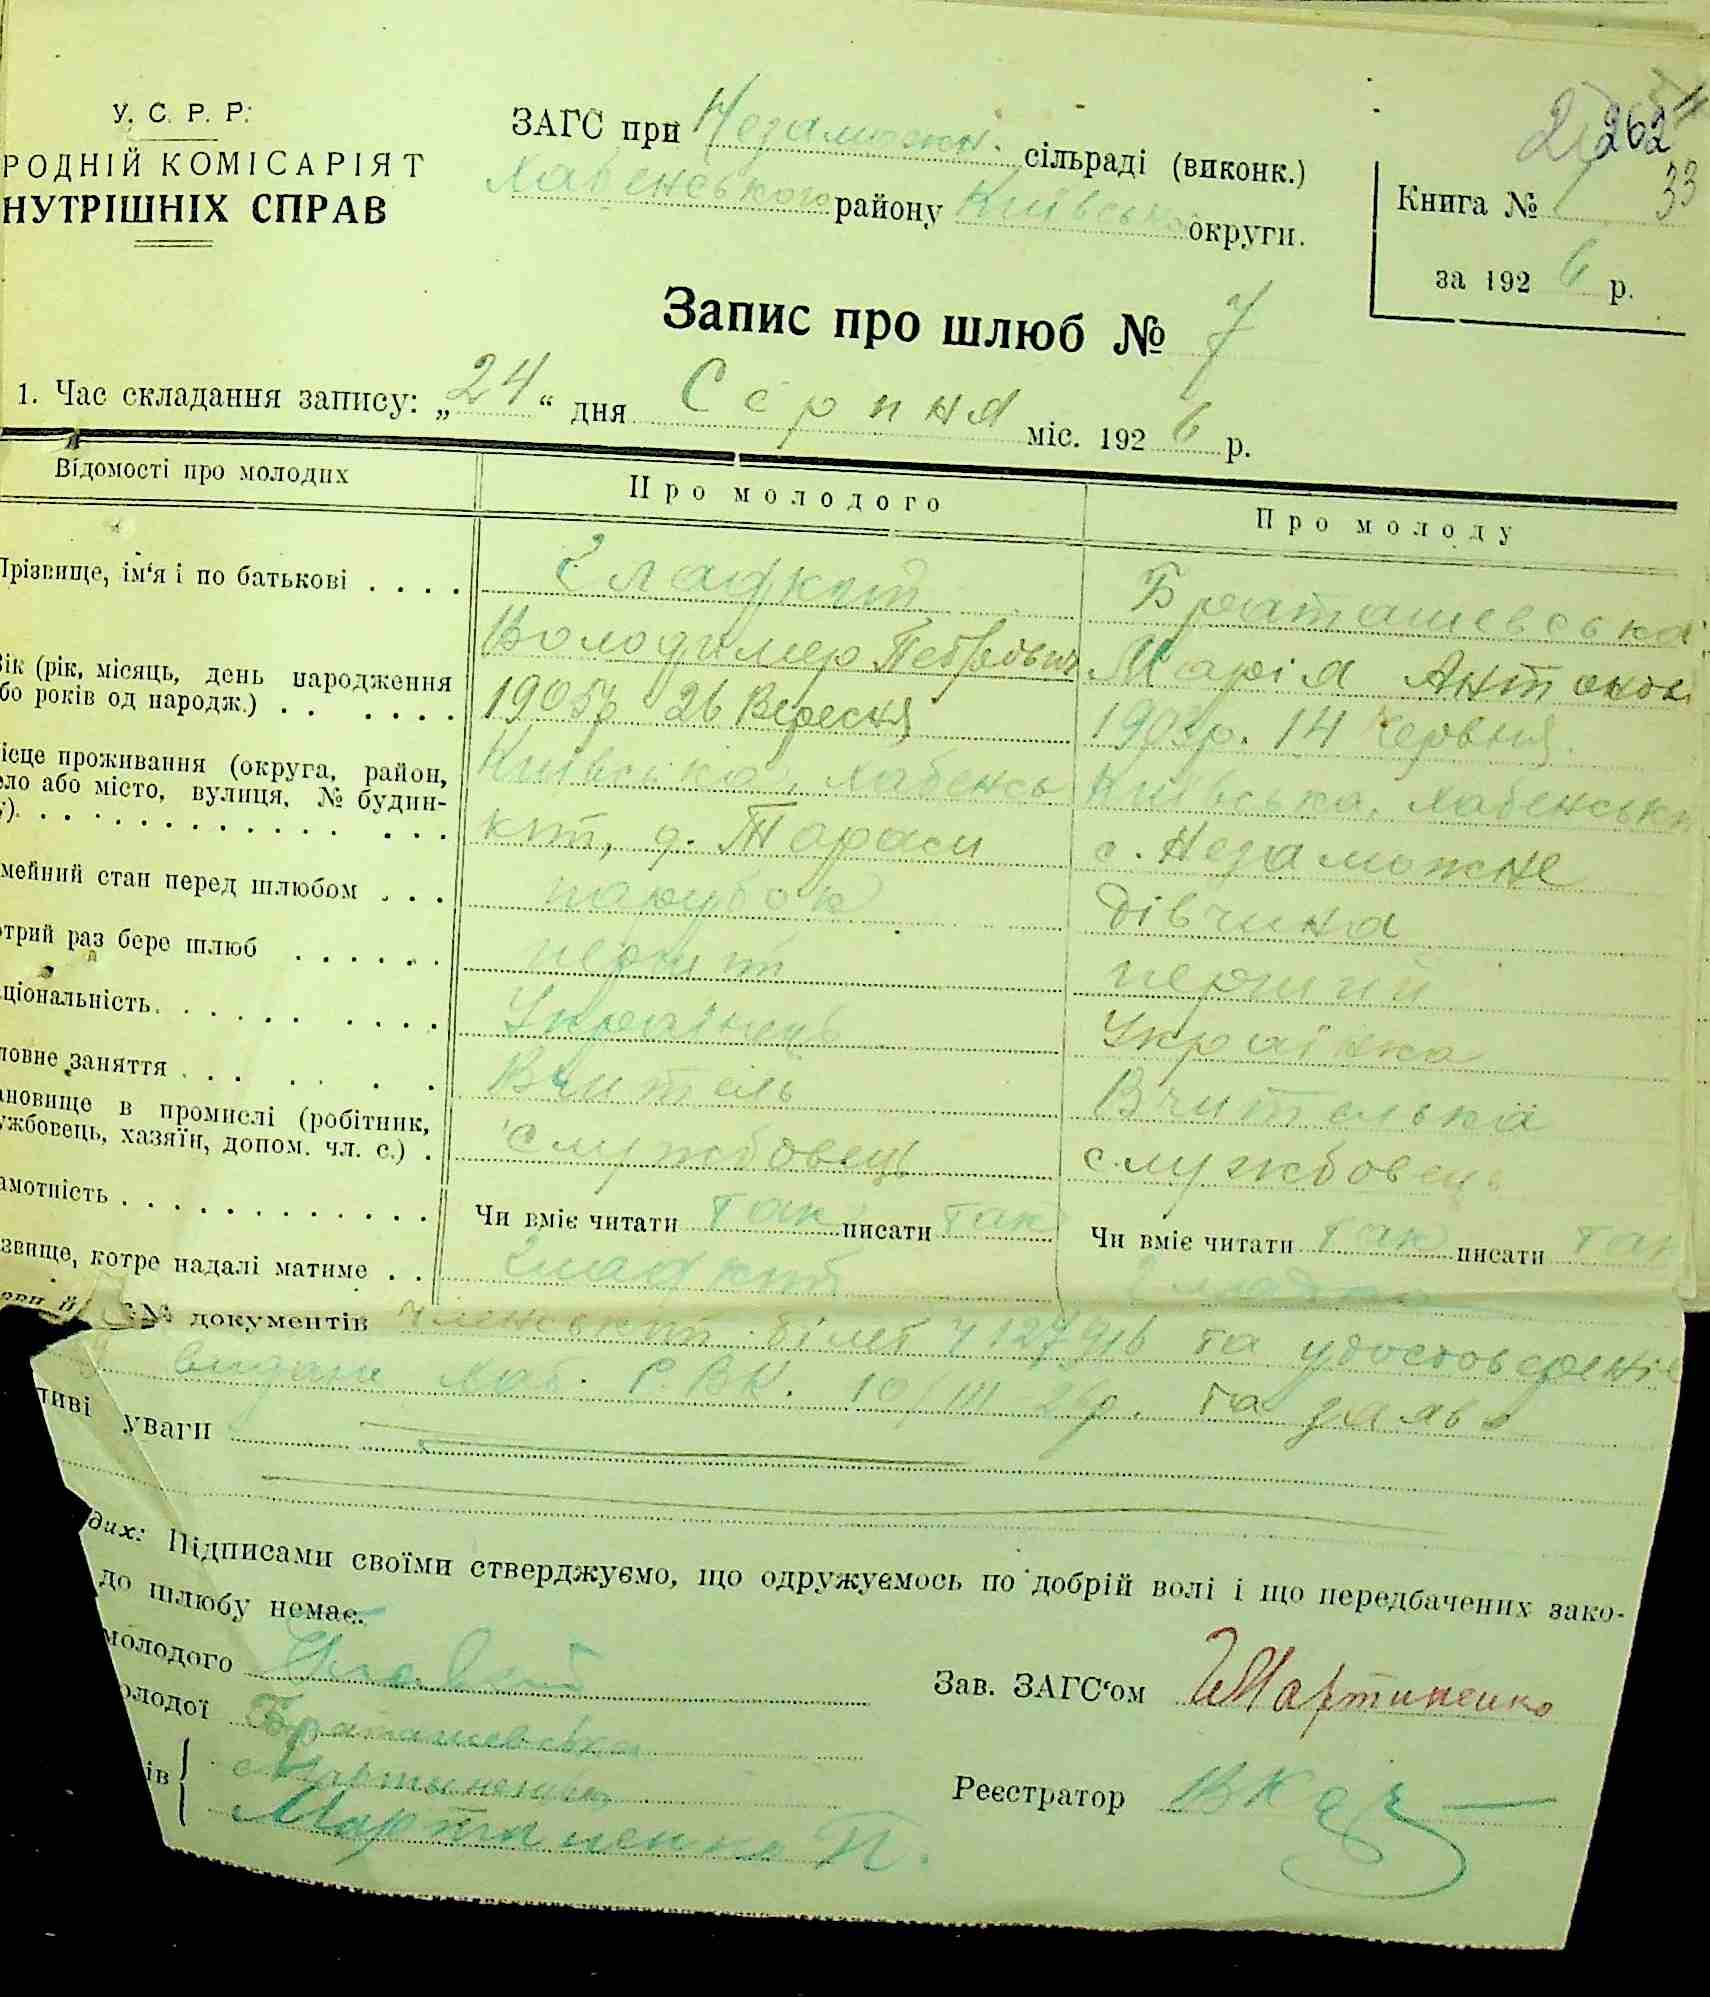 У. С. Р. Р.
РОДНІЙ КОМІСАРІЯТ
НУТРІШНІХ СПРАВ
ЗАГС при Незаможн. сільраді (виконк.)
Хабенського району Київської округи.
262
33
Книга №
за 1926 р.
Запис про шлюб № 7
1. Час складання запису: „24“ дня Серпня міс. 1926 р.
Відомості про молодих
Про молодого
Про молоду
Прізвище, ім'я і по батькові . . . .
Гладкий
Володимер Петрович
Браташевська
Марія Антонов
Вік (рік, місяць, день народження
бо років од народж.) . . . . . .
1905р 26 Вересня
1903р. 14 червня.
ісце проживання (округа, район,
ело або місто, вулиця, № будин-
у)
Київська, Хабенсь
кий, д. Тараси
Київська, Хабенськи
с. Незаможне
мейний стан перед шлюбом . . .
парубок
дівчина
отрий раз бере шлюб . . . . . .
перший
перший
ціональність. . . . . . . . . .
Українець
Українка
ловне заняття . . . . . . .
Вчитель
Вчителька
ановище в промислі (робітник,
ужбовець, хазяїн, допом. чл. с.) .
службовець
службовець
амотність . . . . . . . . . . . . .
Чи вміє читати так писати так
Чи вміє читати так писати так
звище, котре надалі матиме . .
Гладкий
Гладка
документів членський білет Ч. та удостоверені
видане Хаб. Р.В.К. 10/III 26р. та заява
тиві уваги
дих: Підписами своїми стверджуємо, що одружуємось по добрій волі і що передбачених зако-
до шлюбу немає.
молодого Гладкий
олодої Браташевська
ів
Мартыненко
Мартиненко П.
Зав. ЗАГС'ом Мартиненко
Реєстратор